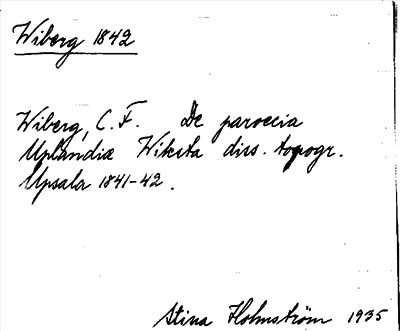 Wiberg 1842
Wiberg, C. F. De paroecia
Uplandiæ Wiksta diss. topogr.
Upsala 1841-42.
Stina Holmström 1935